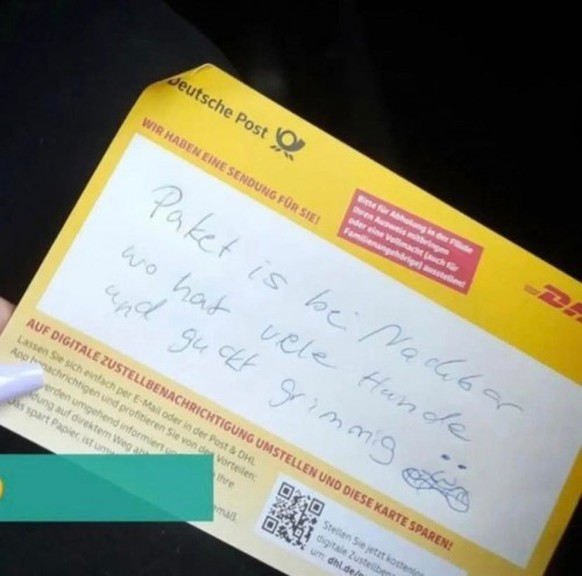 Deutsche Post
WIR HABEN EINE SENDUNG FÜR SIE!
Bitte für Abholung in der Filiale
Ihren Ausweis mitbringen
oder eine Vollmacht (auch für
Familienangehörige) ausstellen!
DH
Paket is bei Nachbar
wo hat viele Hunde
und guckt grimmig
AUF DIGITALE ZUSTELLBENACHRICHTIGUNG UMSTELLEN UND DIESE KARTE SPAREN!
Lassen Sie sich einfach per E-Mail oder in der Post & DHL
App benachrichtigen und profitieren Sie von den Vorteilen:
werden umgehend informiert
dung auf direktem Weg
Ihre
das spart Papier, ist
Stellen Sie jetzt kostenlos
digitale
um: dhl.de/